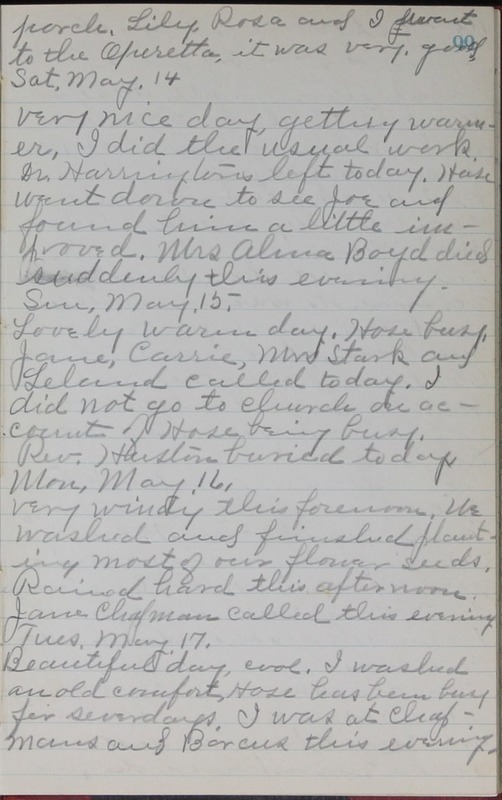 porch. Lily, Rosa and I went
to the Operetta, it was very good
99
Sat, May. 14
very nice day, getting warm-
er, I did the usual work.
Dr. Harringtons left today. Hose
went down to see Joe and
found him a little im-
proved. Mrs Alma Boyd died
suddenly this evening.
Sun, May, 15.
Lovely warm day. Hose busy.
Jane, Carrie, Mrs Stark and
Leland called today. I
did not go to church on ac-
count of Hose being busy.
Rev. Huston buried today
Mon, May, 16,
very windy this forenoon. We
washed and finished plant-
ing most of our flower seeds.
Rained hard this afternoon.
Jane Chapman called this evening
Tues. May 17.
Beautiful day, cool. I washed
an old comfort, Hose has been busy
for severdays. I was at Chap-
mans and Barcus this evening.